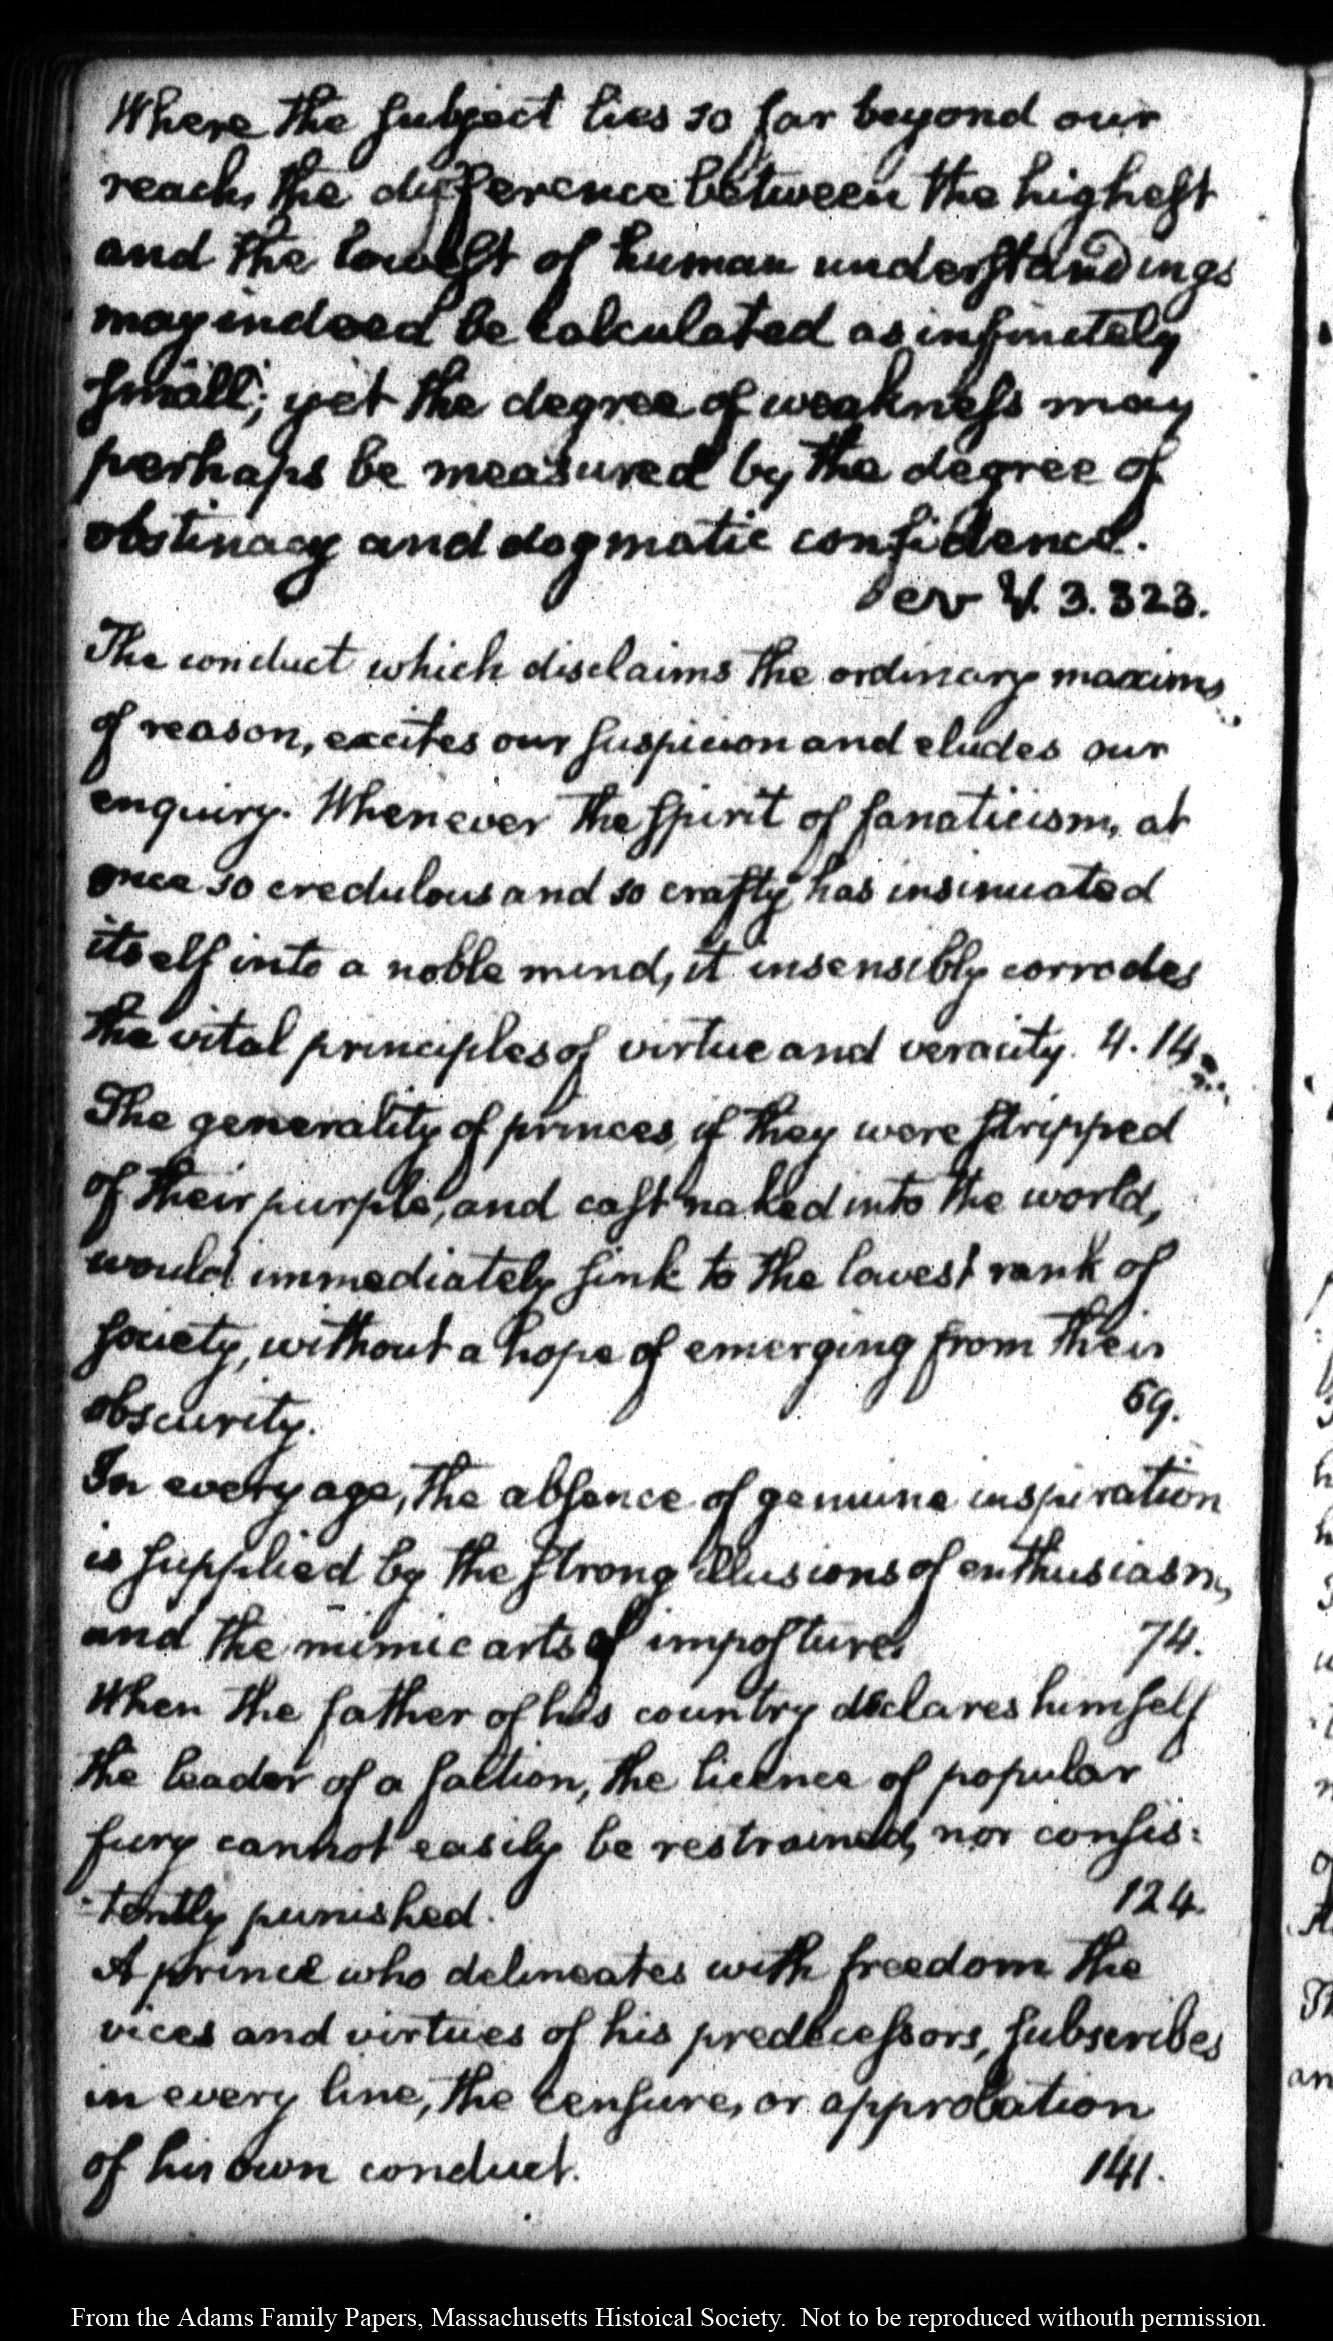 Where the subject lies so far beyond our
reach, the difference between the highest
and the lowest of human understandings
may indeed be calculated as infinitely
small; yet the degree of weakness may
perhaps be measured by the degree of
obstinacy and dogmatic confidence.
V. 3. 323.
The conduct which disclaims the ordinary maxims
of reason, excites our suspicion and eludes our
enquiry. Whenever the spirit of fanaticism, at
once so credulous and so crafty has insinuated
itself into a noble mind, it insensibly corrodes
the vital principles of virtue and veracity. 4. 14
The generality of princes, if they were stripped
of their purple, and cast naked into the world,
would immediately sink to the lowest rank of
society, without a hope of emerging from their
obscurity. 69.
In every age, the absence of genuine inspiration
is supplied by the strong illusions of enthusiasm,
and the mimic arts of imposture. 74.
When the father of his country declares himself
the leader of a faction, the licence of popular
fury cannot easily be restrained, nor consis:
:tently punished. 124.
A prince who delineates with freedom the
vices and virtues of his predecessors, subscribes
in every line, the censure, or approbation
of his own conduct. 141.
From the Adams Family Papers, Massachusetts Histoical Society. Not to be reproduced withouth permission.